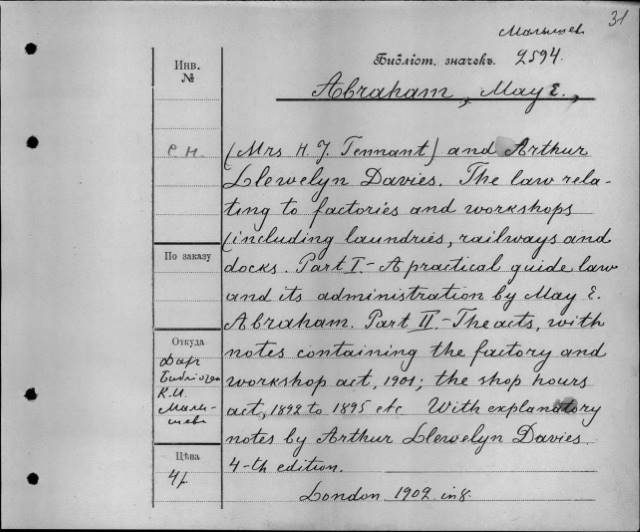 31
Малышев
Библіот. значекъ. 2594.
Инв.
№
Abraham, May E.,
е.н.
(Mrs H. J. Tennant) and Arthur
Llewelyn Davies. The law rela-
ting to factories and workshops
(including laundries, railways and
docks. Part I. - A practical guide law
and its administration by May E.
Abraham. Part II - The acts, with
notes containing the factory and
workshop act, 1901; the shop hours
act, 1892 to 1895 etc With explanatory
notes by Arthur Llewelyn Davies.
4-th edition.
London 1902 in 8.
По заказу
Откуда
Даръ
К.И.
Малы-
шева
Цѣна